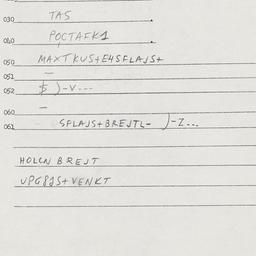 030 TAS .
040 POCTAFK1 .
050 MAXTKUS+EHSFLAJS+
051 —
052 $ )-V---
060 —
061 SFLAJS+BREJTL- )-Z...
HOLCN BREJT
VPG8JS+VENKT